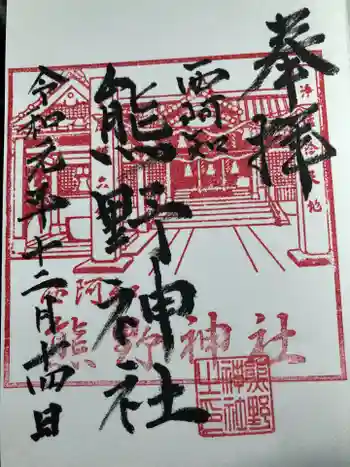 奉拝
西阿知
熊野神社
令和元年十二月廿四日
西阿知
熊野神社
熊野神社之印